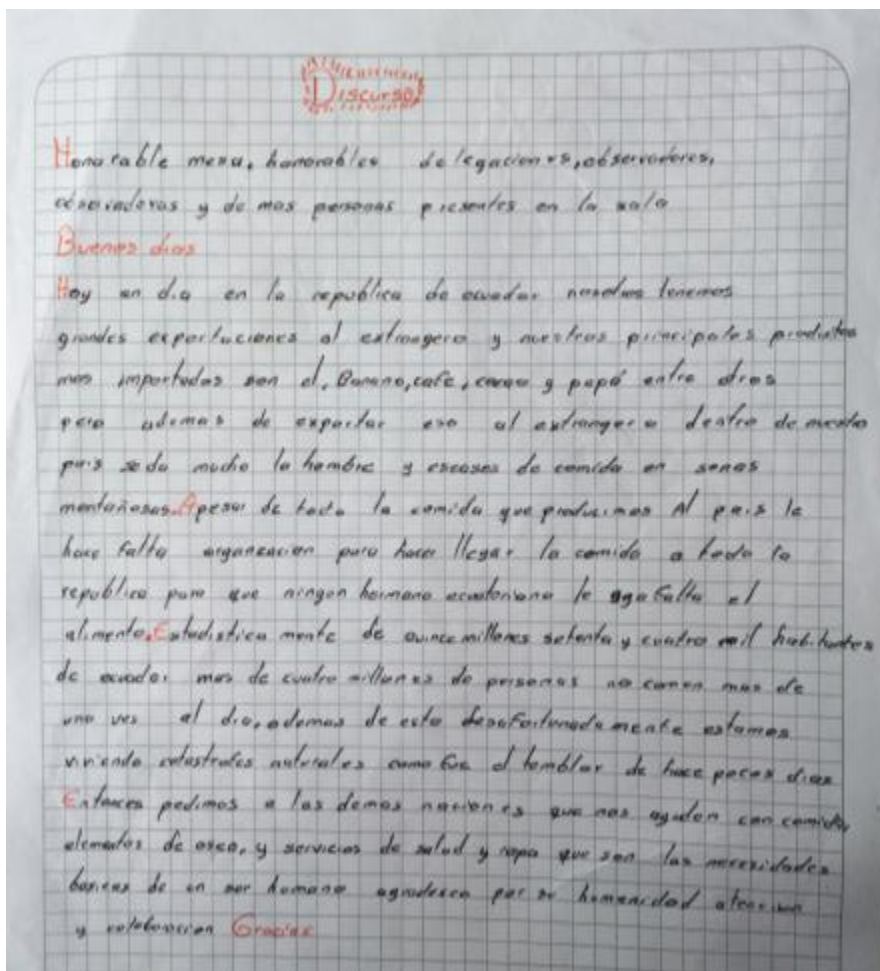 Discurso
Honorable mesa, honorables delegaciones, observadores,
observadoras y de mas personas presentes en la sala
Buenos dias
Hoy en dia en la republica de ecuador nosotros tenemos
grandes exportaciones al extrangero y nuestros principales productos
mas importados son el, Banano, cafe, cacao y papa entre otros
pero ademas de exportar eso al extrangero dentro de nuestro
pais se da mucho la hambre y escases de comida en sonas
montañosas. Apesar de toda la comida que producimos Al pais le
hace falta organizacion para hacer llegar la comida a toda la
republica para que ningon hermano ecuatoriano le aga falta el
alimento. Estadistica mente de quince millones setenta y cuatro mil habitantes
de ecuador mas de cuatro millones de personas no comen mas de
una ves al dia, ademas de esto desafortunada mente estamos
viviendo catastrofes naturales como fue el temblor de hace pocos dias
Entonces pedimos a las demas naciones que nos ayuden con comida,
elementos de aseo, y servicios de salud y ropa que son las necesidades
basicas de un ser humano agradesco por su humanidad atencion
y colaboracion Gracias